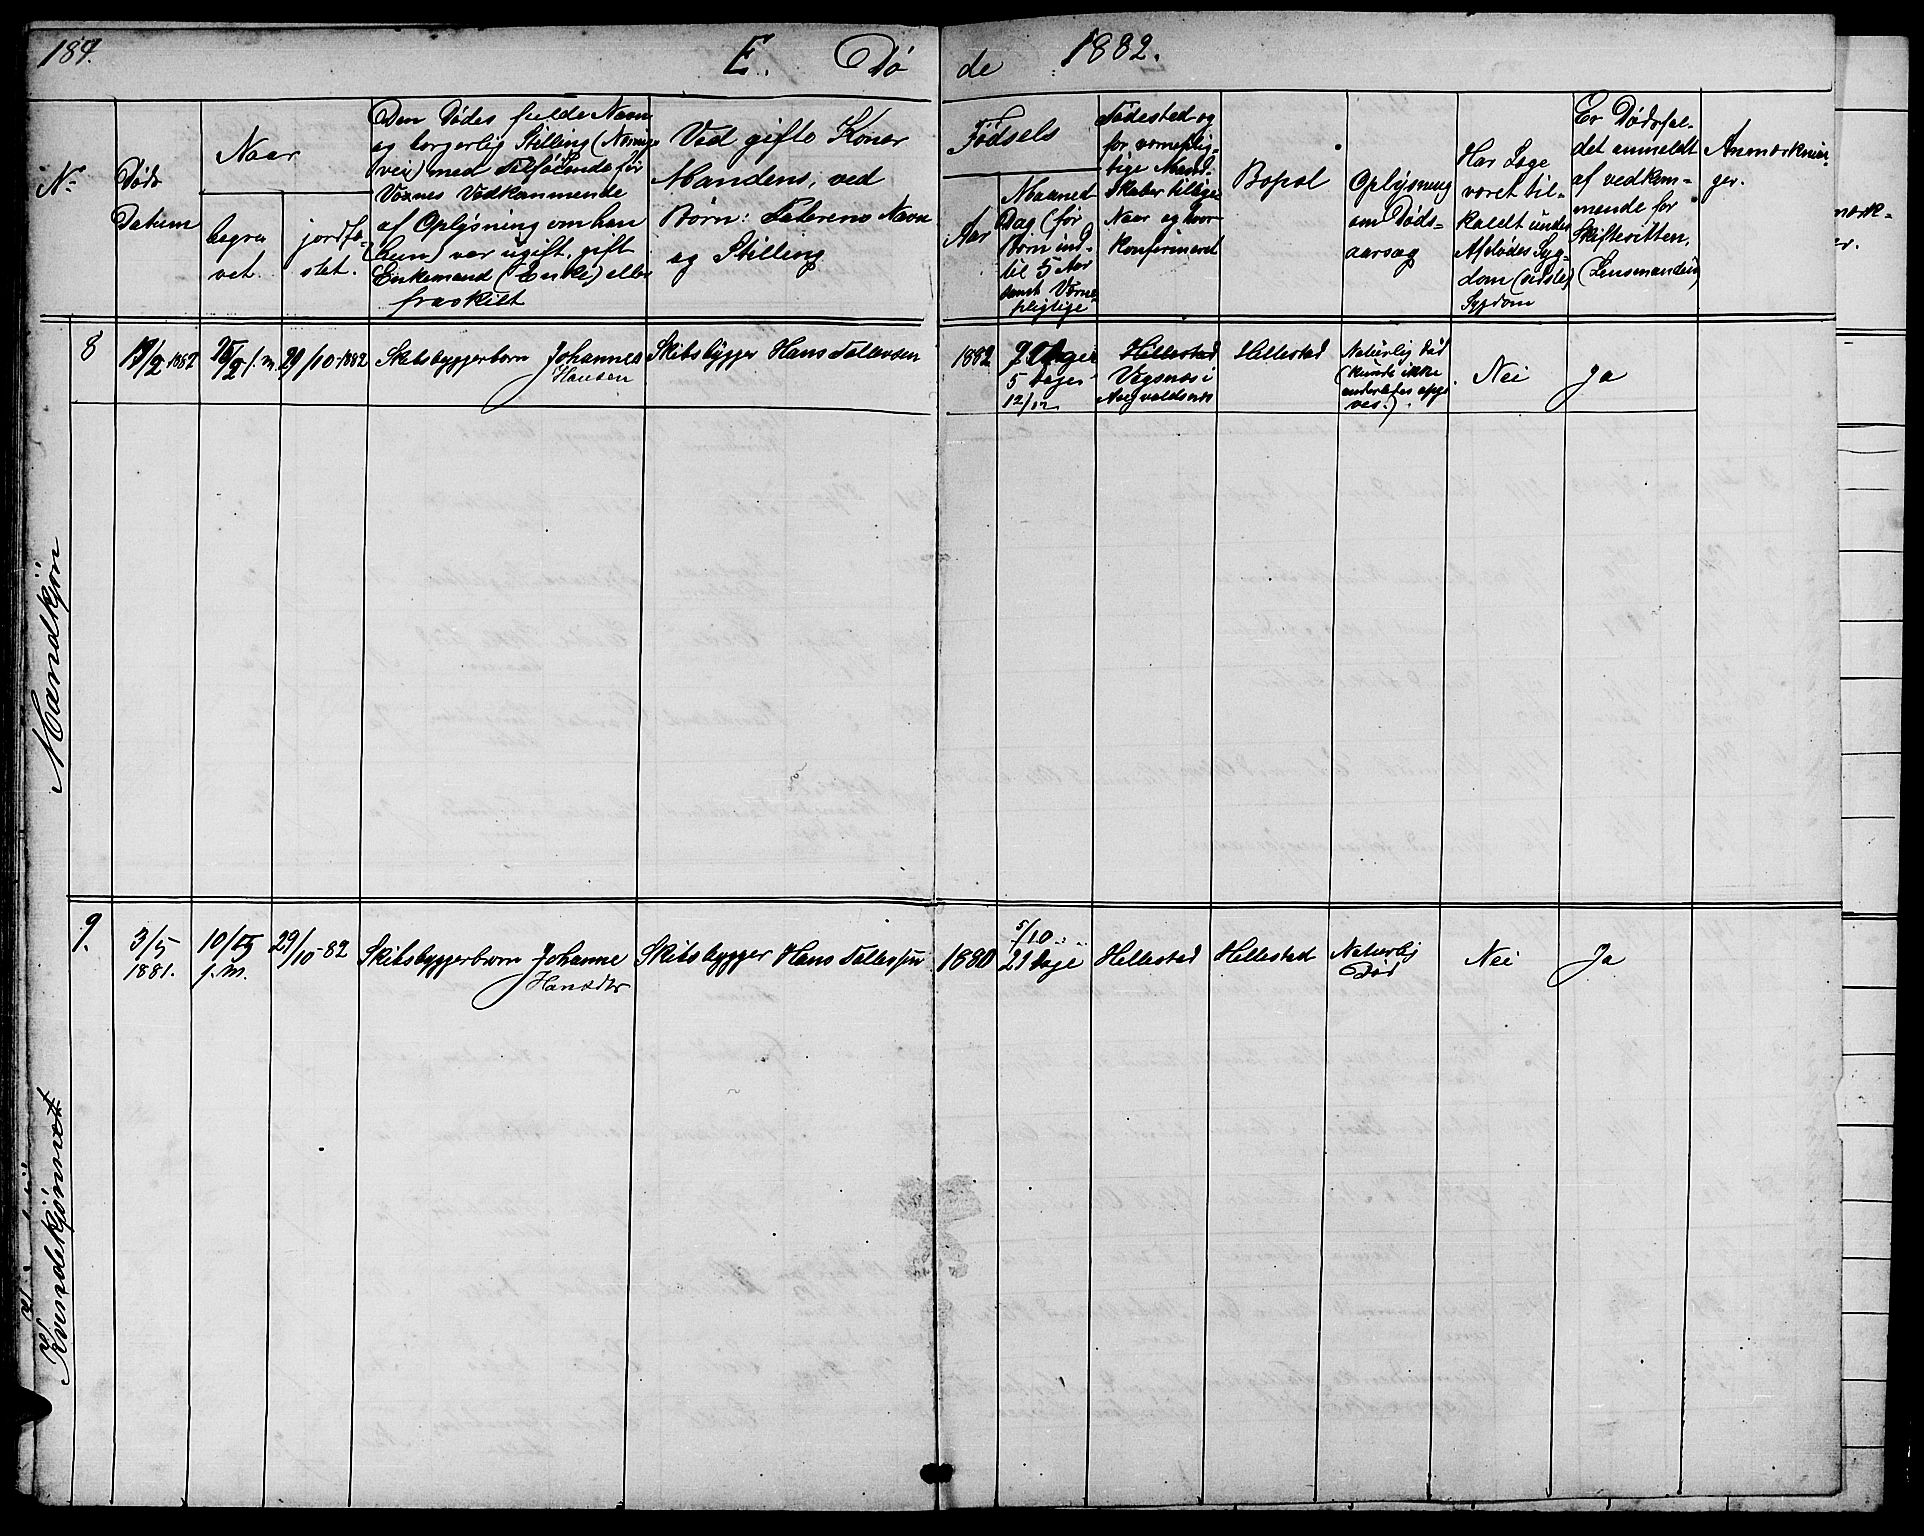 184.
E. Dø de 1882.
No
Døds
Datum
Naar
begra
vet
jordfæ-
stet.
Den Dødes fulde Navn
og borgerlig Stilling (Nærings
vei) med Tilføiende før
Voxnes Vedkommende
af Oplysning om han
(hun) var ugift, gift
Enkemand (Enke) eller
fraskilt
Ved gifte Koner
Mandens, ved
Børn: Faderens Navn
og Stilling
Fødsels
Aar
Maaned
Dag (før
Børn ind-
til 5 Aar
samt Værne-
pligtige
Fødested og
for værneplig-
tige Mand-
skaber tillige
Naar og hvor
konfirmeret
Bopæl
Oplysning
om Døds-
aarsag
Har Læge
været til-
kaldt under
Afdødes Syg-
dom (sidste)
Sygdom
Er Dødsfal-
det anmeldt
af vedkom-
mende for
Skifteretten.
(Lensmanden)
Anmærknin-
ger.
Mandkjøn
8
19/2 1882
25/2 f. m.
29/10-1882
Skibsbyggerbarn Johannes
Hansen
Skibsbygger Hans Tollevsen
1882
9 Uger
5 dage
12/12
Hillestad
Vegsnæs i
Augvaldsnæs
Hillestad
Naturlig Død
(kunde ikke
anderledes opgi
ves.)
Nei
Ja
Kvindekjønnet
9.
3/5
1881.
10/5
f. m.
29/10-82
Skibsbyggerbarn Johanne
Hansdtr
Skibsbygger Hans Tollevsen
1880
5/10
21 dage
Hellestad
Hellestad
Naturlig
Død
Nei
Ja